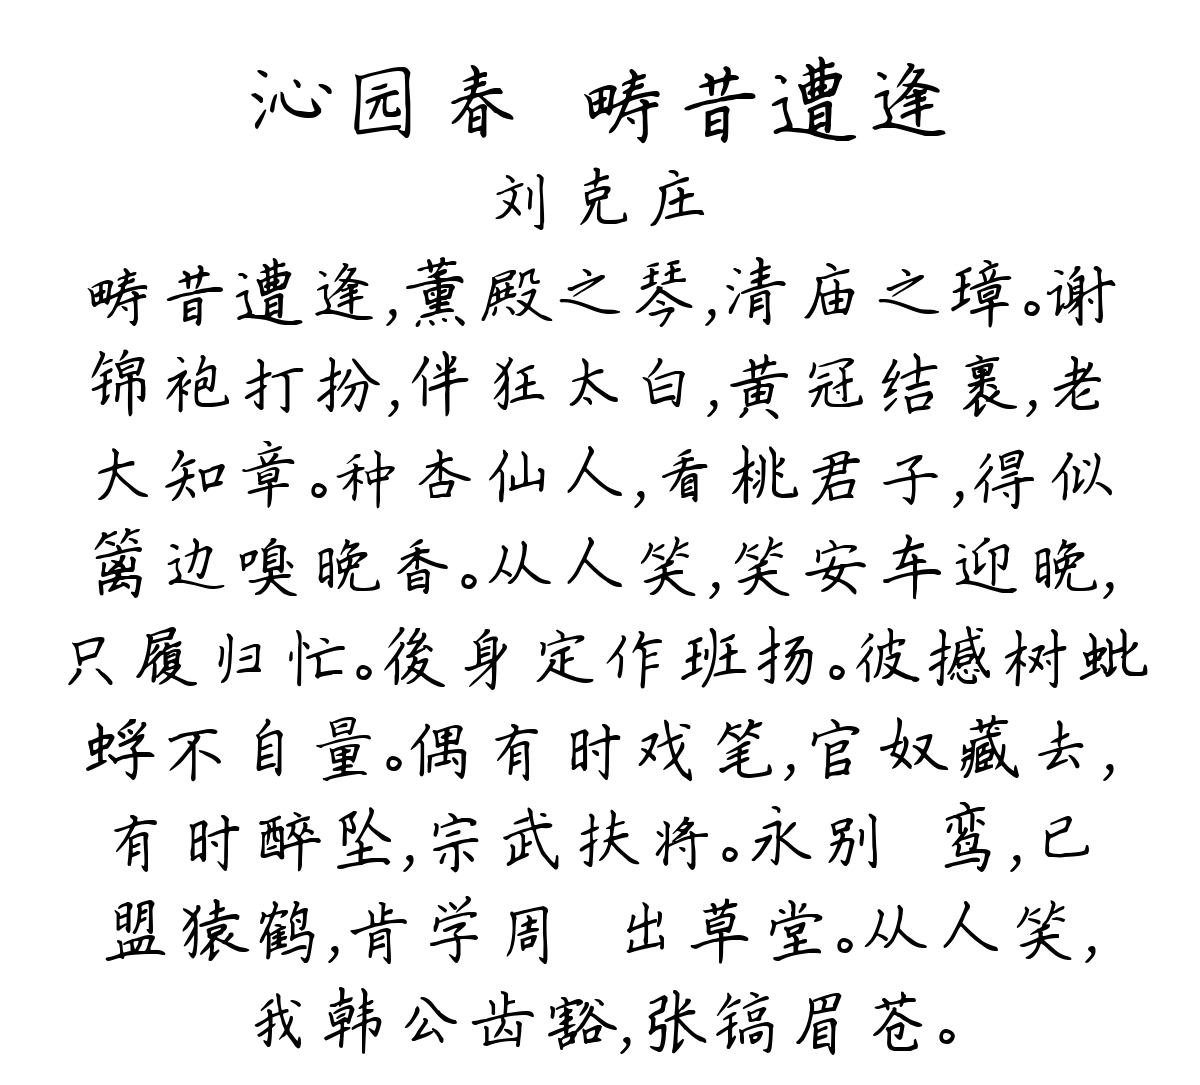 沁园春 畴昔遭逢
刘克庄
畴昔遭逢,薰殿之琴,清庙之璋。谢
锦袍打扮,伴狂太白,黄冠结裹,老
大知章。种杏仙人,看桃君子,得似
篱边嗅晚香。从人笑,笑安车迎晚,
只履归忙。後身定作班扬。彼撼树蚍
蜉不自量。偶有时戏笔,官奴藏去,
有时醉坠,宗武扶将。永别 鸾,已
盟猿鹤,肯学周 出草堂。从人笑,
我韩公齿豁,张镐眉苍。